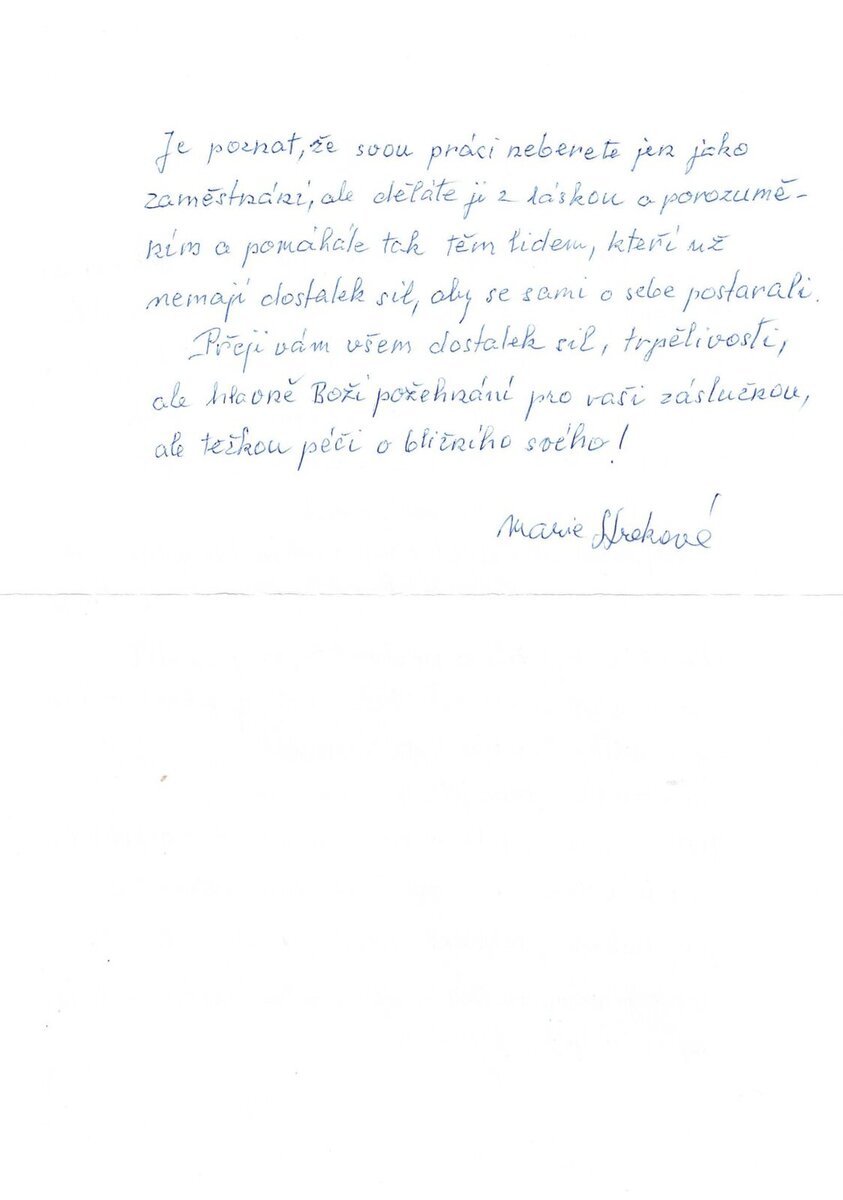 Je poznat, že svou práci neberete jen jako
zaměstnání, ale děláte ji z láskou a porozumě-
ním a pomáháte tak těm lidem, kteří už
nemají dostatek sil, aby se sami o sebe postarali.
Přeji vám všem dostatek sil, trpělivosti,
ale hlavně Boží požehnání pro vaši záslužnou,
ale težkou péči o bližního svého!
Marie